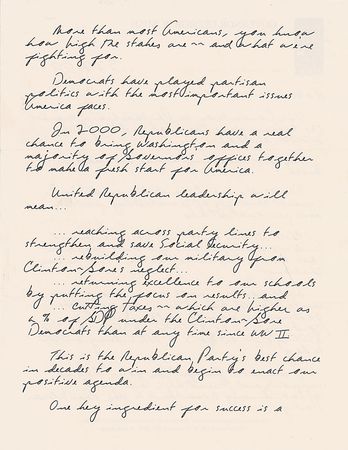 More than most Americans, you know
how high the stakes are -- and what we're
fighting for.
Democrats have played partisan
politics with the most important issues
America faces.
In 2000, Republicans have a real
chance to bring Washington and a
majority of Governors' offices together
to make a fresh start for America.
United Republican leadership will
mean...
... reaching across party lines to
strengthen and save Social Security...
... rebuilding our military from
Clinton-Gore's neglect...
... returning excellence to our schools
by putting the focus on results, and
... cutting taxes -- which are higher as
a % of GDP under the Clinton-Gore
Democrats than at any time since WW II.
This is the Republican Party's best chance
in decades to win and begin to enact our
positive agenda.
One key ingredient for success is a